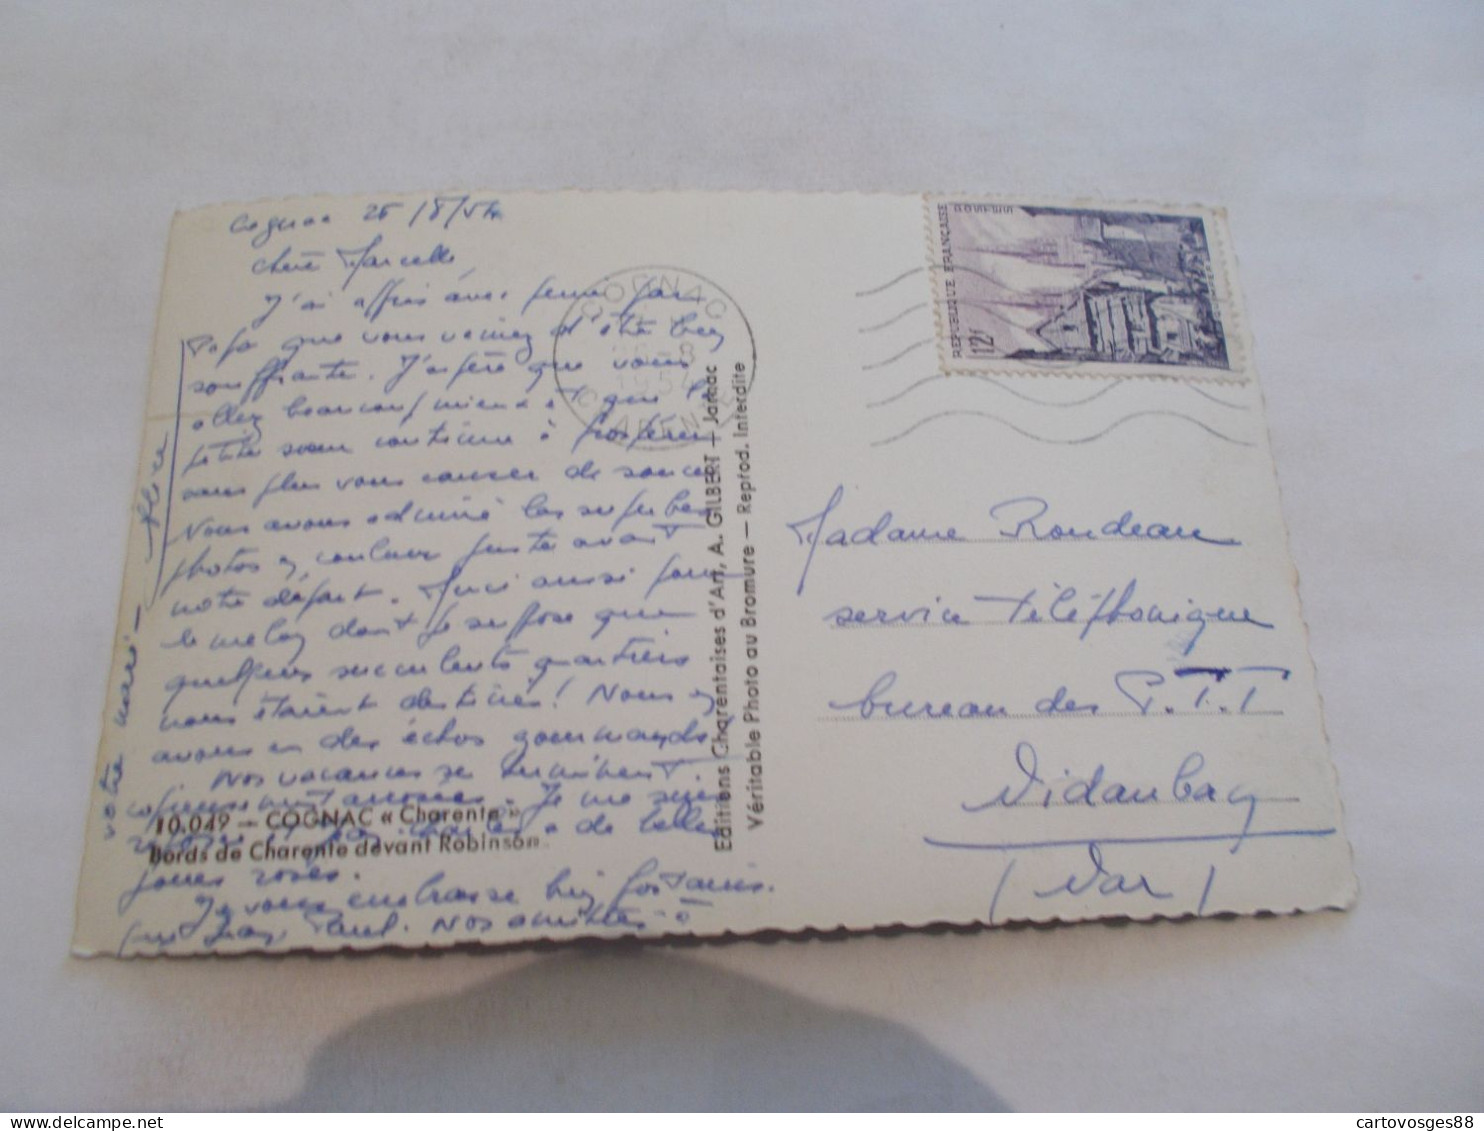 Cognac 25/8/54
Chère Marcelle,
J'ai appris avec peine par
Papa que vous veniez d'être bien
souffrante. J'espère que vous
allez beaucoup mieux et que la
petite sœur continue à prospérer
sans plus vous causer de soucis
Nous avons admiré les superbes
photos en couleur juste avant
notre départ. Merci aussi pour
le melon dont je suppose que
quelques succulents quartiers
nous étaient destinés! Nous en
avons eu des échos gourmands!
Nos vacances se terminent.
copieusement arrosées. Je me suis
de belles
joues roses.
Je vous embrasse bien
Jean Paul. Nos amitiés à
votre mari —
10.049 — COGNAC « Charente »
Bords de Charente devant Robinson
Editions Charentaises d'Art, A. GILBERT — Jarnac
Véritable Photo au Bromure — Reprod. Interdite
COGNAC
-8
1954
CHARENTE
REPUBLIQUE FRANÇAISE
POSTES
12F
Madame Rondeau
service téléphonique
bureau des P.T.T
Vidauban
(Var)
cartovosges88